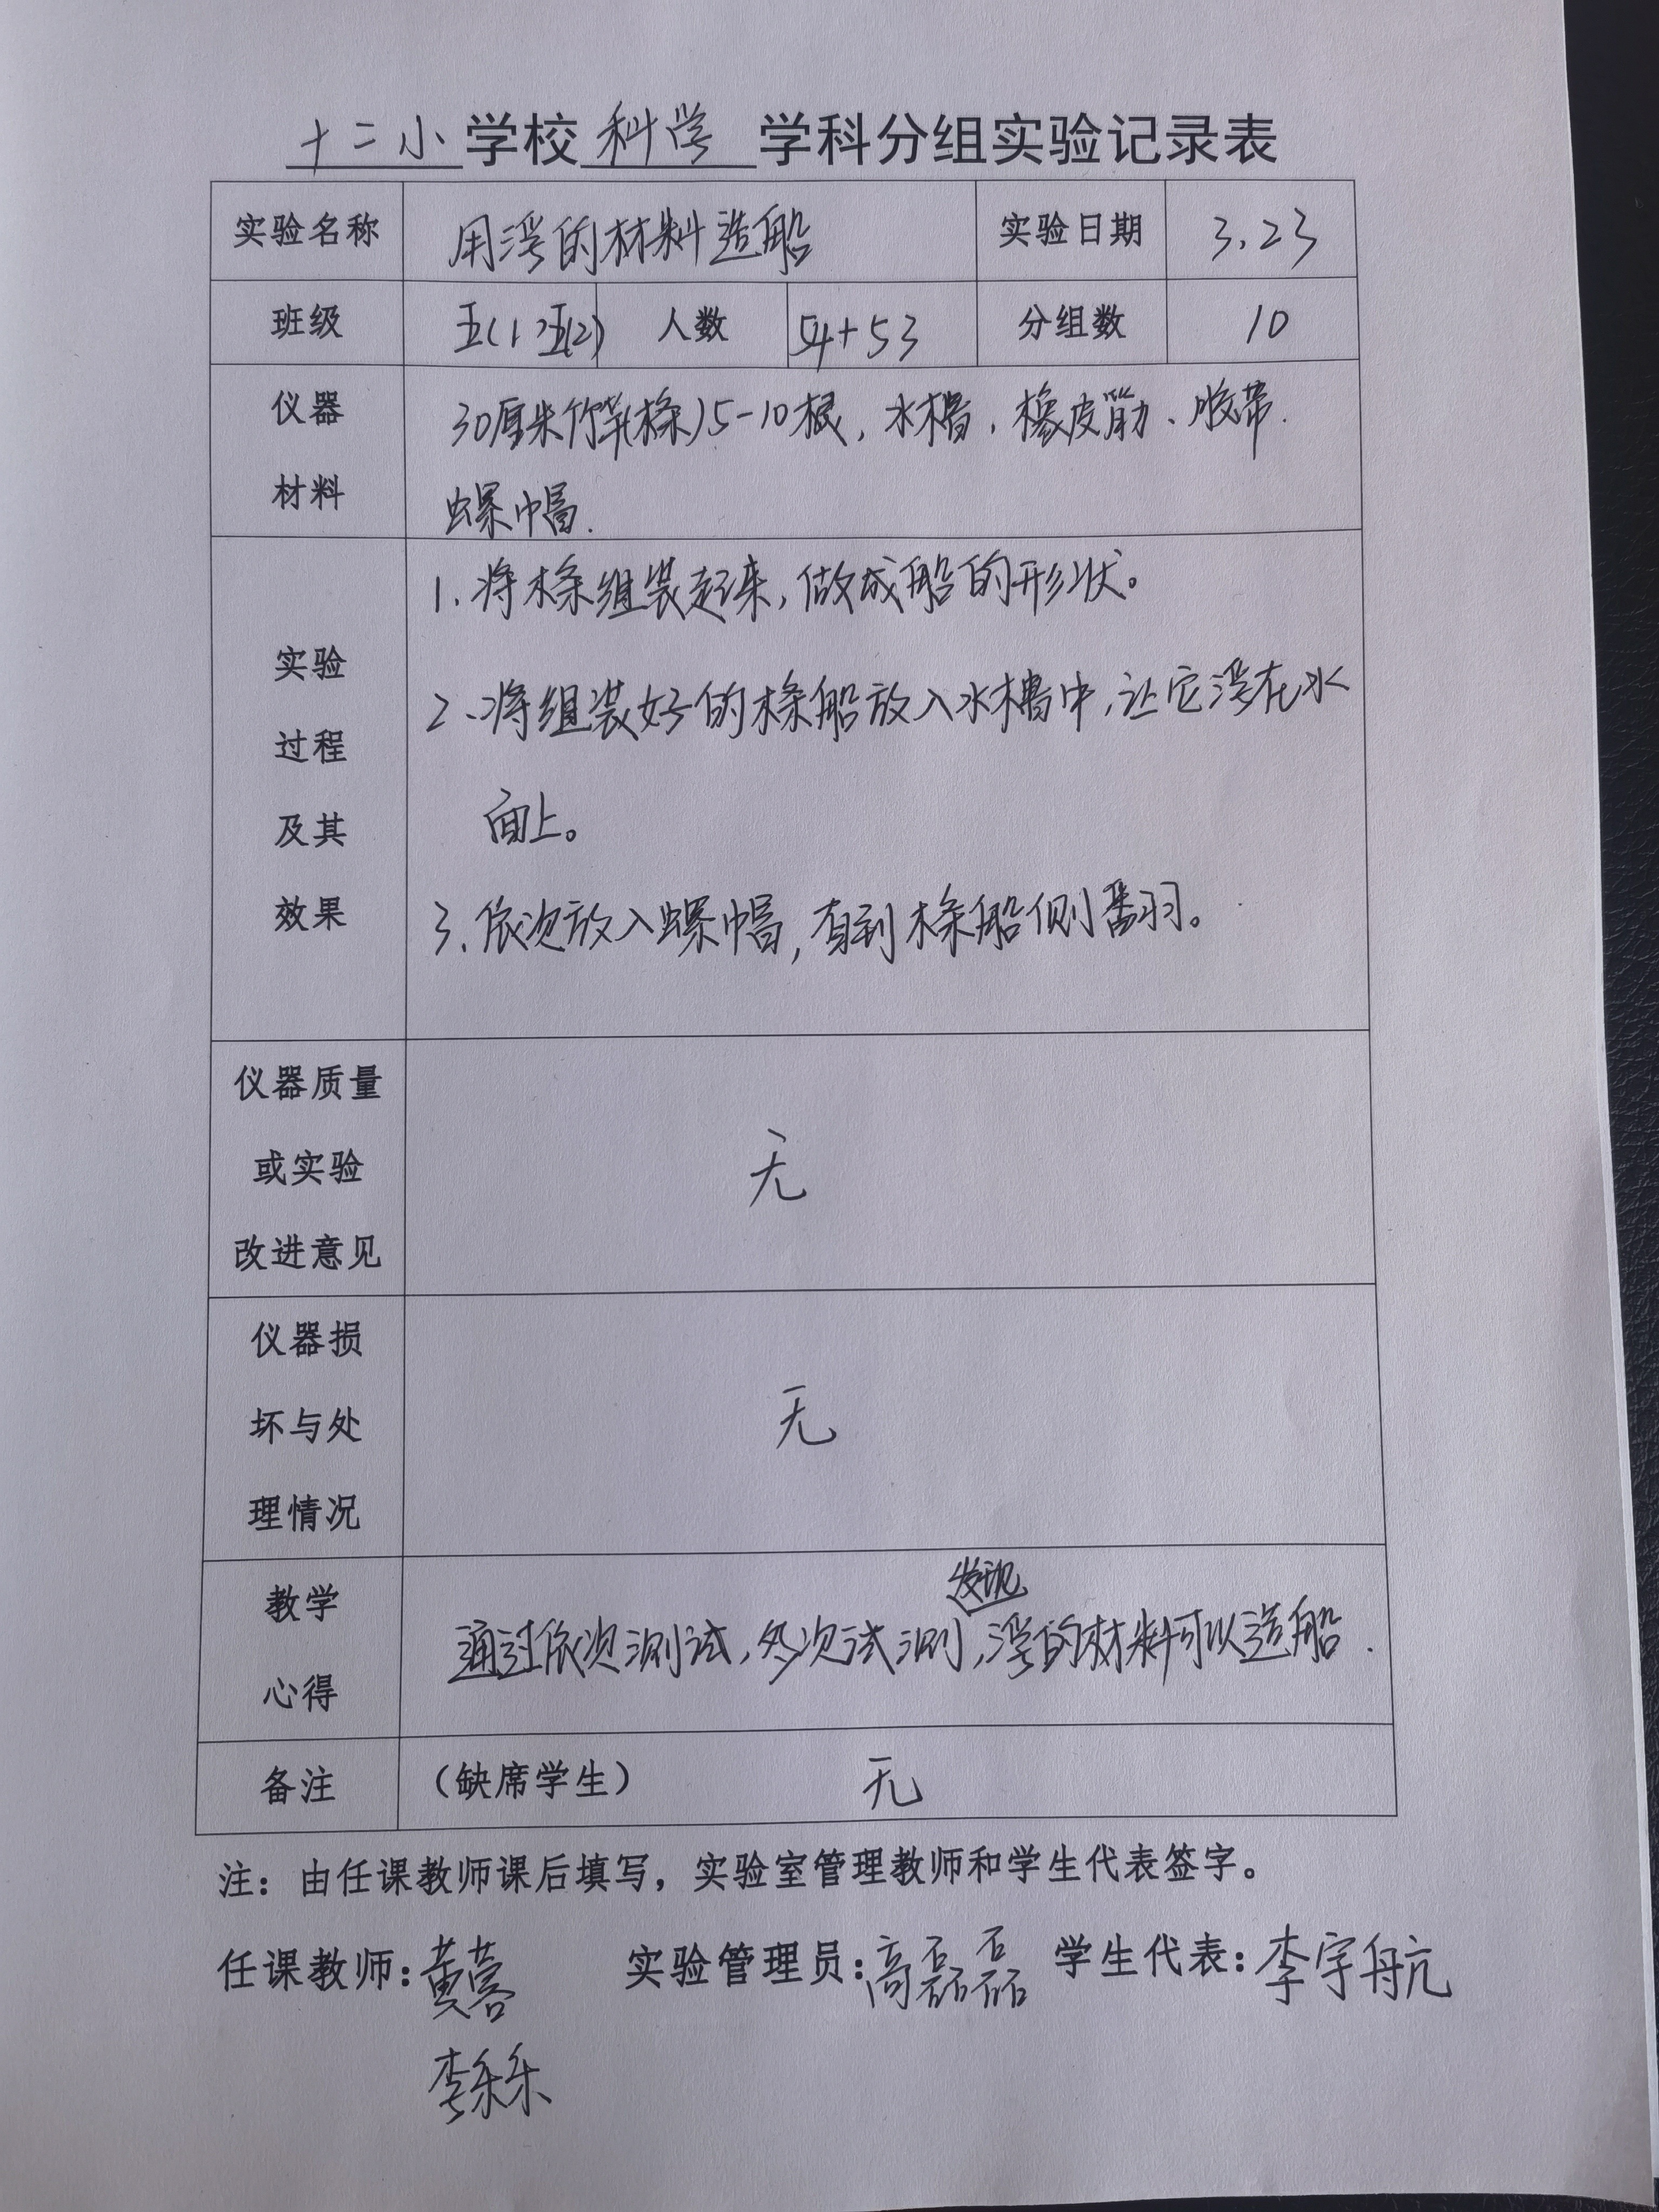 十二小学校科学学科分组实验记录表
实验名称 用浮的材料造船 实验日期 3.23
班级 五(1)五(2) 人数 54+53 分组数 10
仪器
材料
30厘米竹竿(條)5-10根,水槽,橡皮筋、胶带.
螺帽.
实验
过程
及其
效果
1.将條组装起来,做成船的形状。
2、将组装好的條船放入水槽中,让它浮在水
面上。
3.依次放入螺帽,直到條船侧翻。
仪器质量
或实验
改进意见
无
仪器损
坏与处
理情况
无
教学
心得
发现
通过依次测试,多次试测,浮的材料可以造船.
备注 (缺席学生) 无
注:由任课教师课后填写,实验室管理教师和学生代表签字。
任课教师:黄蓉 实验管理员:高磊磊 学生代表:李宇航
李乐乐